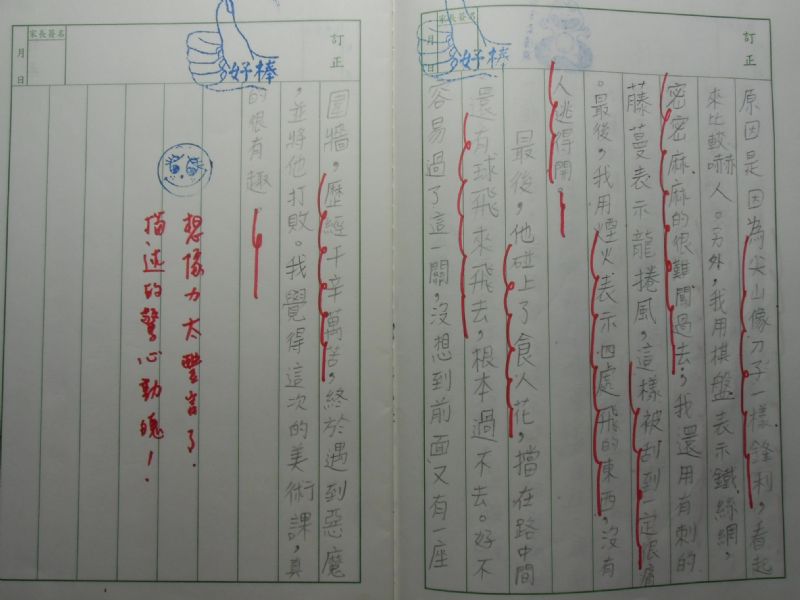 訂正
家長簽名
月
日
多好棒
原因是因為尖山像刀子一樣鋒利,看起
來比較嚇人。另外,我用棋盤表示鐵絲網,
密密麻麻的很難闖過去,我還用有刺的
藤蔓表示龍捲風,這樣被刮到一定很痛
。最後,我用煙火表示四處飛的東西,沒有
人逃得開。
最後,他碰上了食人花,擋在路中間
還有球飛來飛去,根本過不去。好不
容易過了這一關,沒想到前面又有一座
訂正
家長簽名
月
日
多好棒
圍牆,歷經千辛萬苦,終於遇到惡魔
,並將他打敗。我覺得這次的美術課,真
的很有趣。
想像力太豐富了.
描述的驚心動魄!